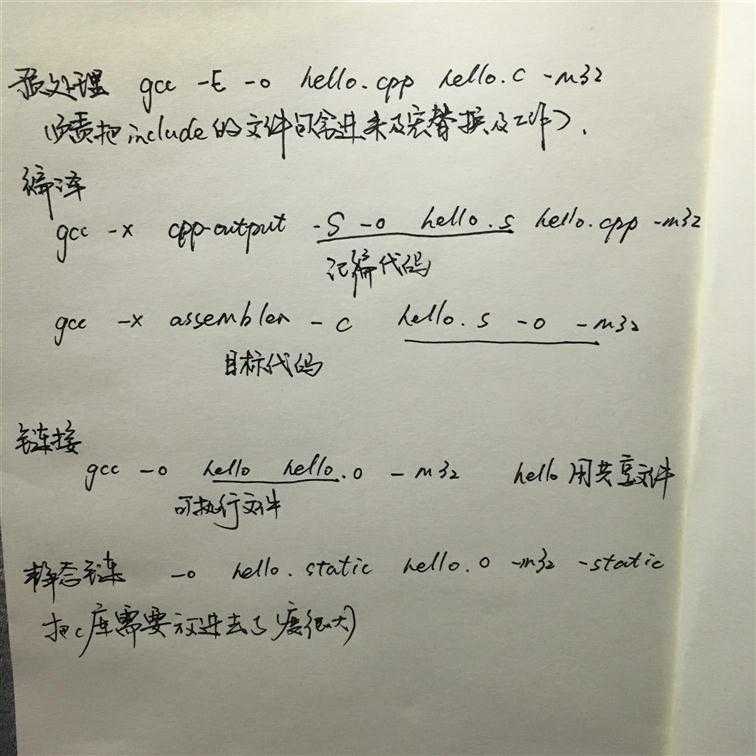 预处理 gcc -E -o hello.cpp hello.c -m32
(负责把include的文件包含进来及宏替换及工作).
编译
gcc -x cpp-output -S -o hello.s hello.cpp -m32
汇编代码
gcc -x assembler -c hello.s -o -m32
目标代码
链接
gcc -o hello hello.o -m32 hello用共享文件
可执行文件
静态链 -o hello.static hello.o -m32 -static
把c库需要放进去了 很大)